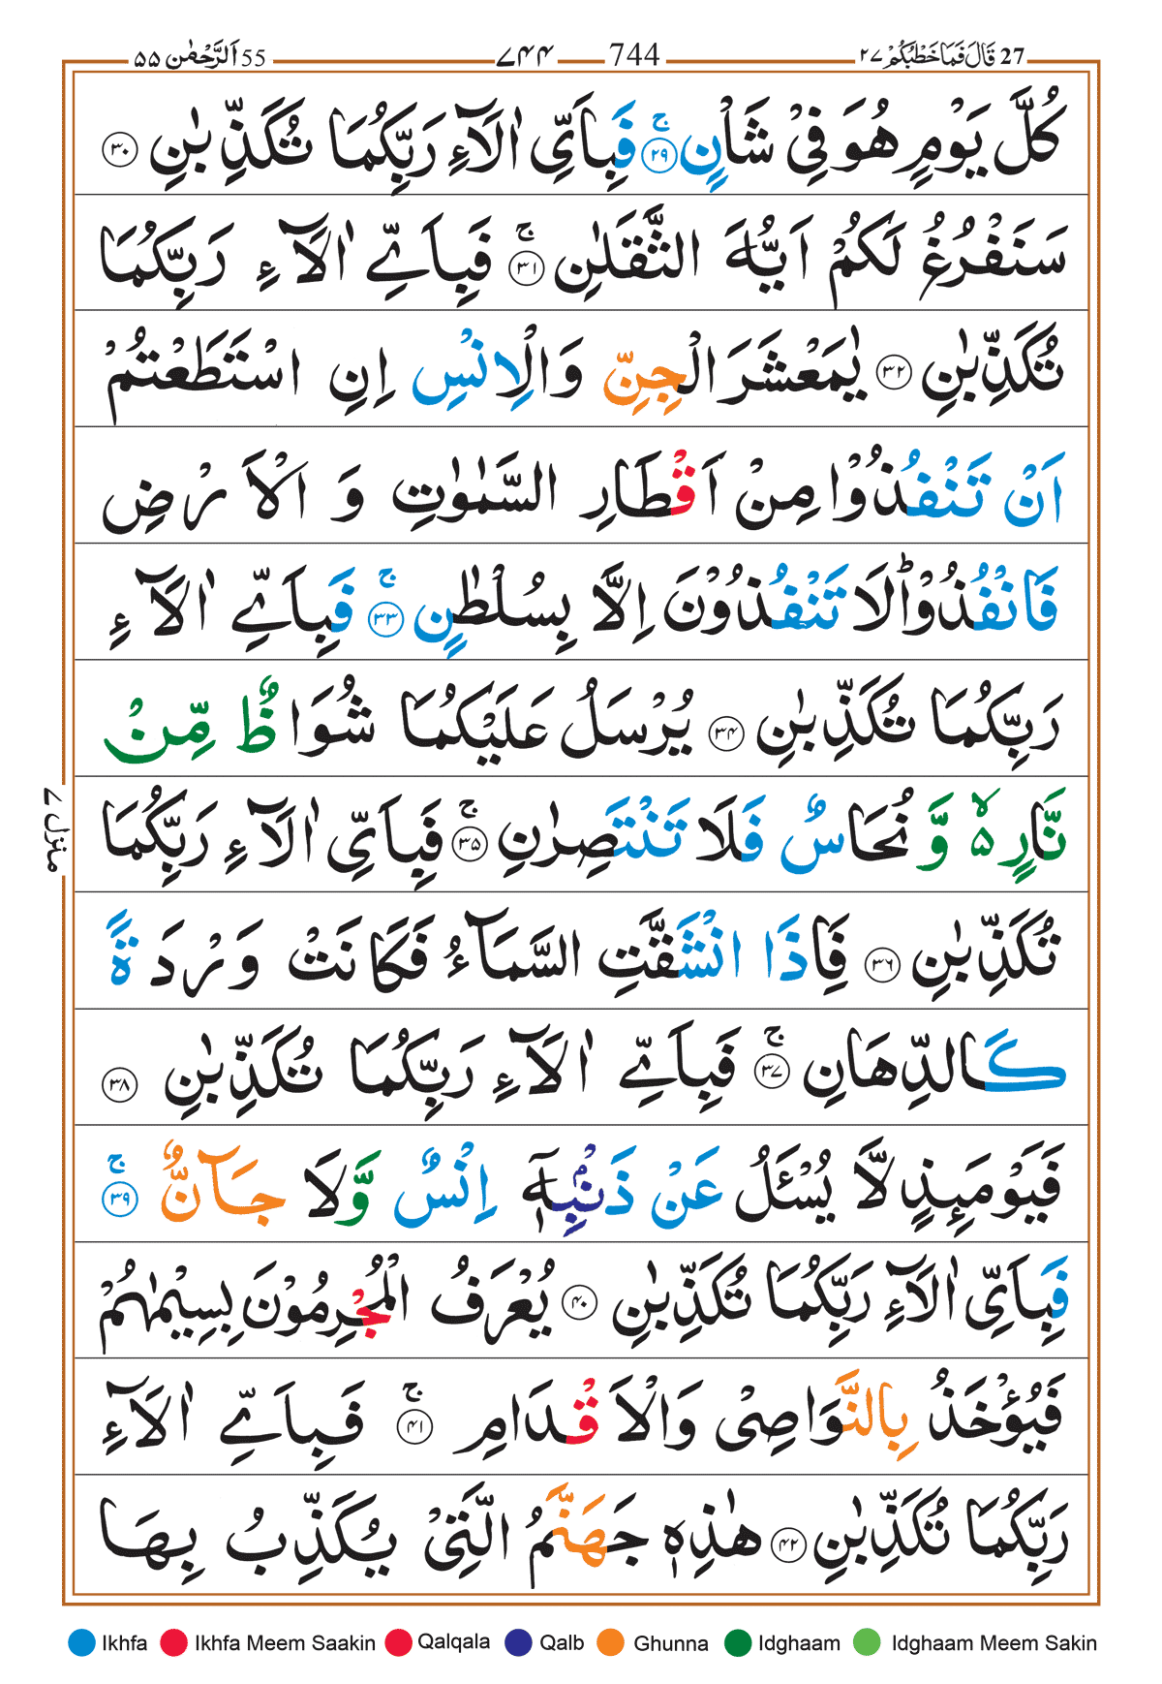 27 قَالَ فَمَا خَطْبُكُمْ ٢٧ 744 ٧٤٤ 55 اَلرَّحْمٰن ٥٥
كُلَّ يَوْمٍ هُوَ فِيْ شَاْنٍ ۚ ٢٩ فَبِاَيِّ اٰلَآءِ رَبِّكُمَا تُكَذِّبٰنِ ٣٠
سَنَفْرُغُ لَكُمْ اَيُّهَ الثَّقَلٰنِ ۚ ٣١ فَبِاَيِّ اٰلَآءِ رَبِّكُمَا
تُكَذِّبٰنِ ٣٢ يٰمَعْشَرَ الْجِنِّ وَالْاِنْسِ اِنِ اسْتَطَعْتُمْ
اَنْ تَنْفُذُوْا مِنْ اَقْطَارِ السَّمٰوٰتِ وَ الْاَرْضِ
فَانْفُذُوْا ؕ لَا تَنْفُذُوْنَ اِلَّا بِسُلْطٰنٍ ۚ ٣٣ فَبِاَيِّ اٰلَآءِ
رَبِّكُمَا تُكَذِّبٰنِ ٣٤ يُرْسَلُ عَلَيْكُمَا شُوَاظٌ مِّنْ
نَّارٍ ۙ۵ وَّ نُحَاسٌ فَلَا تَنْتَصِرٰنِ ۚ ٣٥ فَبِاَيِّ اٰلَآءِ رَبِّكُمَا
تُكَذِّبٰنِ ٣٦ فَاِذَا انْشَقَّتِ السَّمَآءُ فَكَانَتْ وَرْدَةً
كَالدِّهَانِ ۚ ٣٧ فَبِاَيِّ اٰلَآءِ رَبِّكُمَا تُكَذِّبٰنِ ٣٨
فَيَوْمَىِٕذٍ لَّا يُسْـَٔلُ عَنْ ذَنْۢبِهٖۤ اِنْسٌ وَّلَا جَآنٌّ ۚ ٣٩
فَبِاَيِّ اٰلَآءِ رَبِّكُمَا تُكَذِّبٰنِ ٤٠ يُعْرَفُ الْمُجْرِمُوْنَ بِسِيْمٰىهُمْ
فَيُؤْخَذُ بِالنَّوَاصِيْ وَالْاَقْدَامِ ۚ ٤١ فَبِاَيِّ اٰلَآءِ
رَبِّكُمَا تُكَذِّبٰنِ ٤٢ هٰذِهٖ جَهَنَّمُ الَّتِيْ يُكَذِّبُ بِهَا
منزل ٧
Ikhfa Ikhfa Meem Saakin Qalqala Qalb Ghunna Idghaam Idghaam Meem Sakin